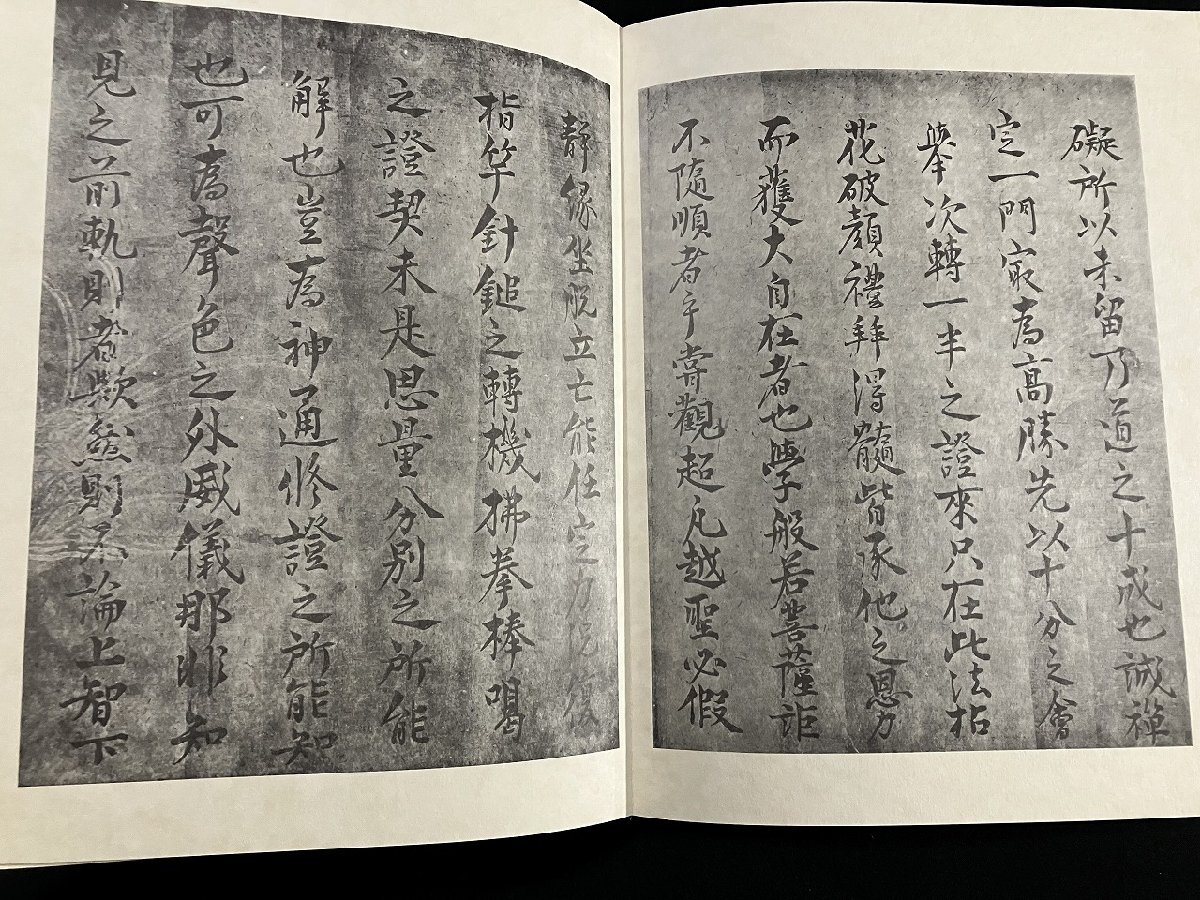 礙所以未留乃道之十成也誠禪
定一門㝡為髙勝先以十分之會
舉次轉一半之證來只在此法拈
花破顔禮拜得髓皆承他之恩力
而獲大自在者也學般若菩薩詎
不隨順者乎甞觀超凡越聖必假
靜緣坐脱立亡能任定力況復
指竿針鎚之轉機拂拳棒喝
之證契未是思量分別之所能
解也豈為神通修證之所能知
也可為聲色之外威儀那非知
見之前軌則者歟然則不論上智下